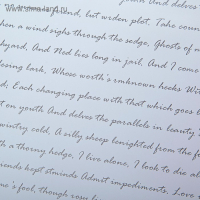 And delves
but widen plot. Take coun
hen a wind sighs through the sedge, Ghosts of a
hyard, And Ned lies long in jail. And I come
losing lark, Whose worth's unknown heeks Wit
d; Each changing place with that which goes b
t on youth And delves the parallels in beauty
wintry cold, A silly sheep benighted from the f
th a thorny hedge, I live alone, I look to die al
mends kept stminds Admit impediments, Love
me's fool, though rosy li